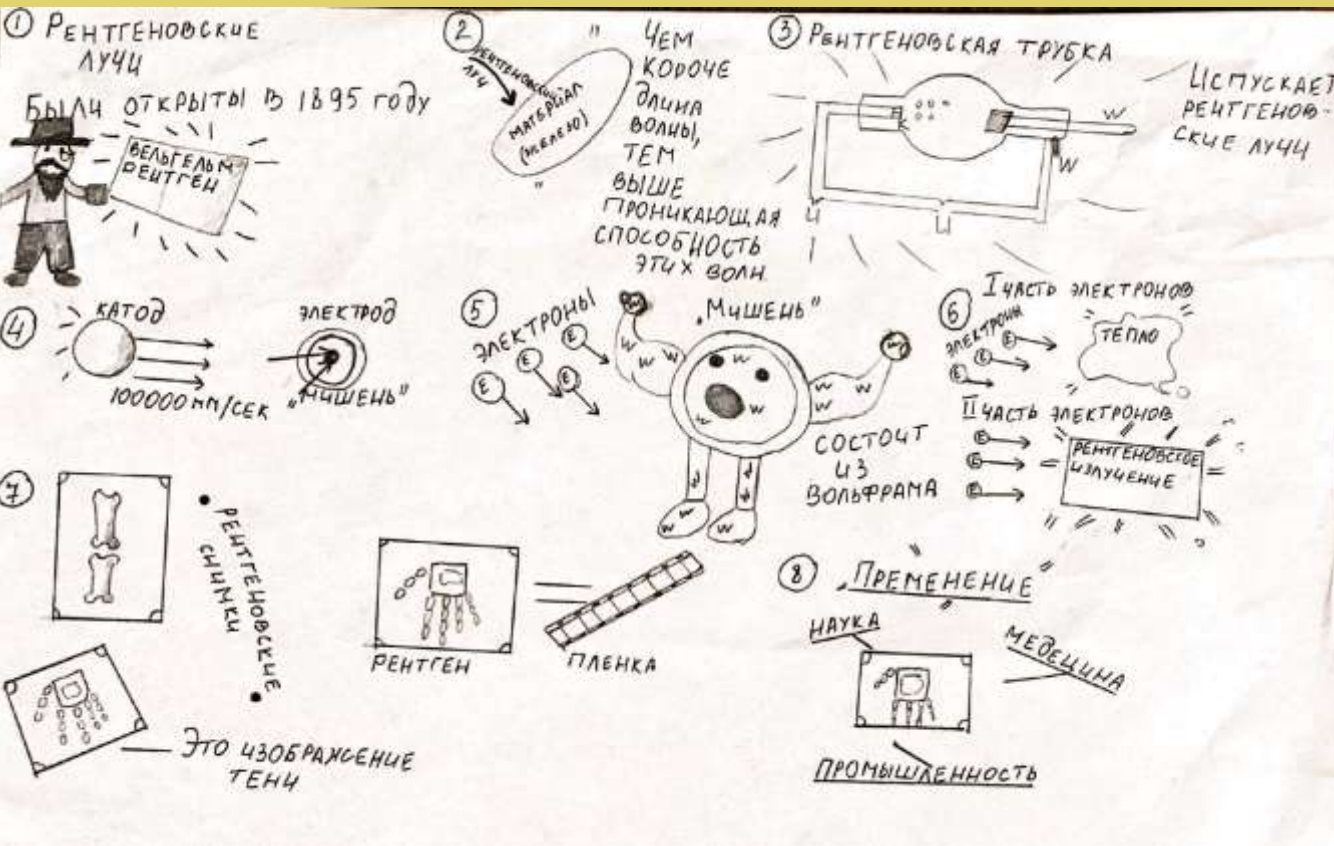 ① Рентгеновские
лучи
Были открыты в 1895 году
Вельгельм
Рентген
②
Рентгеновские
лучи
Материал
(железо)
"Чем
короче
длина
волны,
тем
выше
проникающая
способность
этих волн"
③ Рентгеновская трубка
К
W
W
Испускает
рентгенов-
ские лучи
④
Катод
100000 км/сек
Электрод
„Мишень"
⑤
Электроны
Е
Е
Е
Е
„Мишень"
W
Состоит
из
вольфрама
⑥
I часть электронов
Электроны
Е
Е
Е
Тепло
II часть электронов
Е
Е
Е
Рентгеновское
излучение
⑦
• Рентгеновские
снимки •
Это изображение
тени
Рентген
Пленка
⑧ Пременение
Наука
Медецина
Промышленность